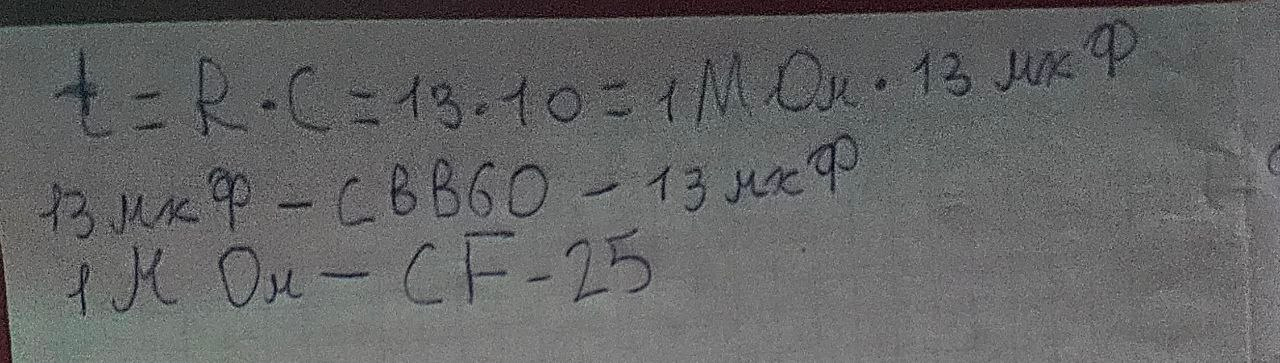 t = R · C = 13 · 10 = 1 М Ом · 13 мкФ
13 мкФ – CBB60 – 13 мкФ
1 М Ом – CF-25